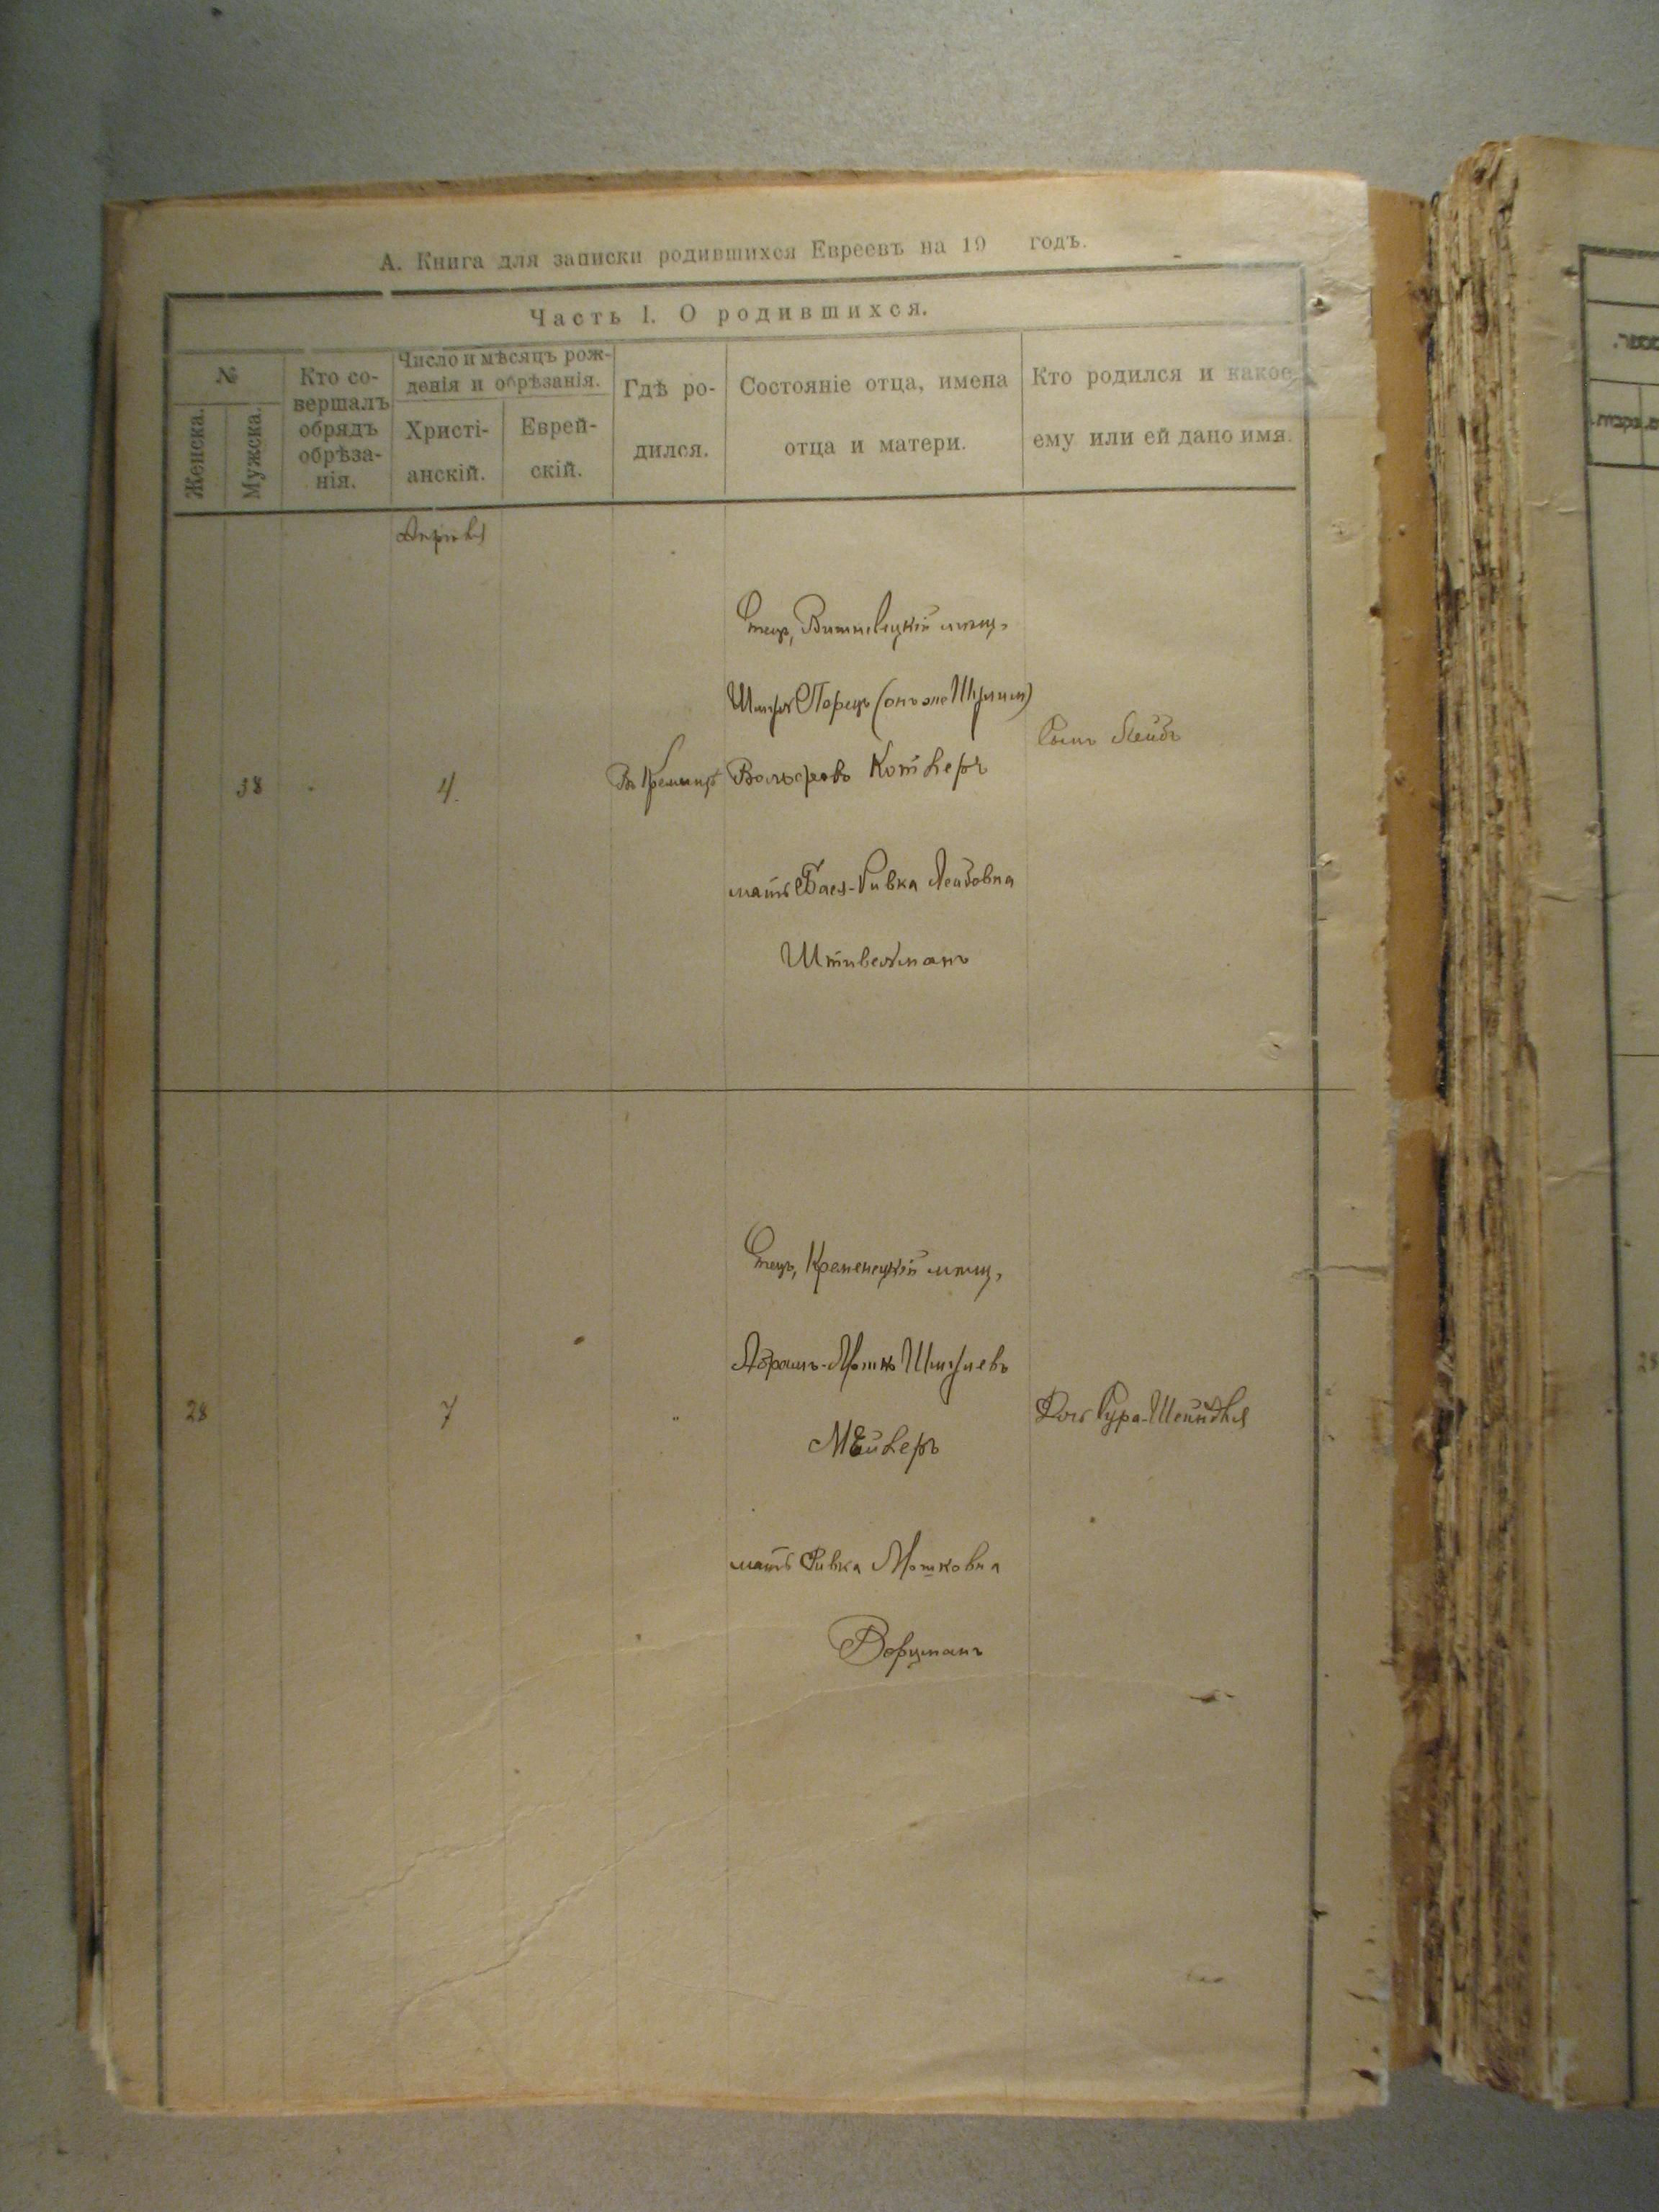 А. Книга для записки родившихся Евреевъ на 19 годъ.
Часть I. О родившихся.
№
Женска.
Мужска.
Кто со-
вершалъ
обрядъ
обрѣза-
нія.
Число и мѣсяцъ рож-
денія и обрѣзанія.
Христі-
анскій.
Еврей-
скій.
Гдѣ ро-
дился.
Состояніе отца, имена
отца и матери.
Кто родился и какое
ему или ей дано имя.
Апрѣля
38
4.
Въ Кременцѣ
Отецъ, Вишневецкій мѣщ.
Шмуль Порецъ (онъ же Шулим)
Вольфовъ Котлеръ
мать Бася-Ривка Лейбовна
Штивельманъ
Сынъ Лейбъ
28
7
"
Отецъ, Кременецкій мѣщ.
Абрамъ-Мошко Шмулевъ
Мейлеръ
мать Ривка Мошковна
Ворцманъ
Дочь Сура-Шейндля